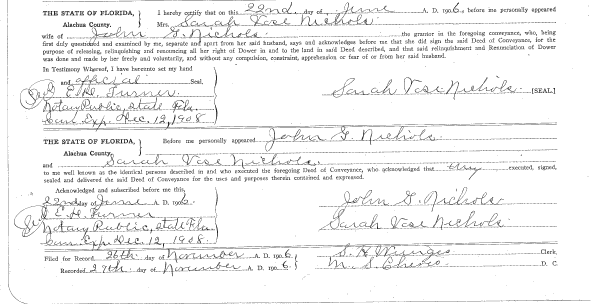 THE STATE OF FLORIDA, I hereby certify that on this 22nd day of June A. D. 1906, before me personally appeared
Alachua County. Mrs. Sarah Vose Nichols
wife of John G. Nichols the grantor in the foregoing conveyance, who, being
first duly questioned and examined by me, separate and apart from her said husband, says and acknowledges before me that she did sign the said Deed of Conveyance, for the
purpose of releasing, relinquishing and renouncing all her right of Dower in and to the land in said Deed described, and that said relinquishment and Renunciation of Dower
was done and made by her freely and voluntarily, and without any compulsion, constraint, apprehension or fear of or from her said husband.
In Testimony Whereof, I have hereunto set my hand
and official Seal,
E. H. Turner Sarah Vose Nichols [SEAL]
Notary Public, State Fla.
Com. Exp. Dec. 12, 1908
THE STATE OF FLORIDA, Before me personally appeared John G. Nichols
Alachua County.
and Sarah Vose Nichols
to me well known as the identical persons described in and who executed the foregoing Deed of Conveyance, who acknowledged that they executed, signed,
sealed and delivered the said Deed of Conveyance for the uses and purposes therein contained and expressed.
Acknowledged and subscribed before me this
22nd day of June A. D. 1906 John G. Nichols
E. H. Turner Sarah Vose Nichols
Notary Public, State Fla
Com. Exp. Dec. 12, 1908
Filed for Record 26th day of November A. D. 1906 S. H. Wienges Clerk,
Recorded 27th day of November A. D. 1906 M. S. Cheves D. C.